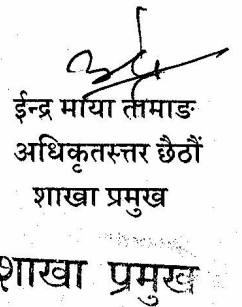 ईन्द्र माया तामाङ
अधिकृतस्तर छैठौं
शाखा प्रमुख
शाखा प्रमुख